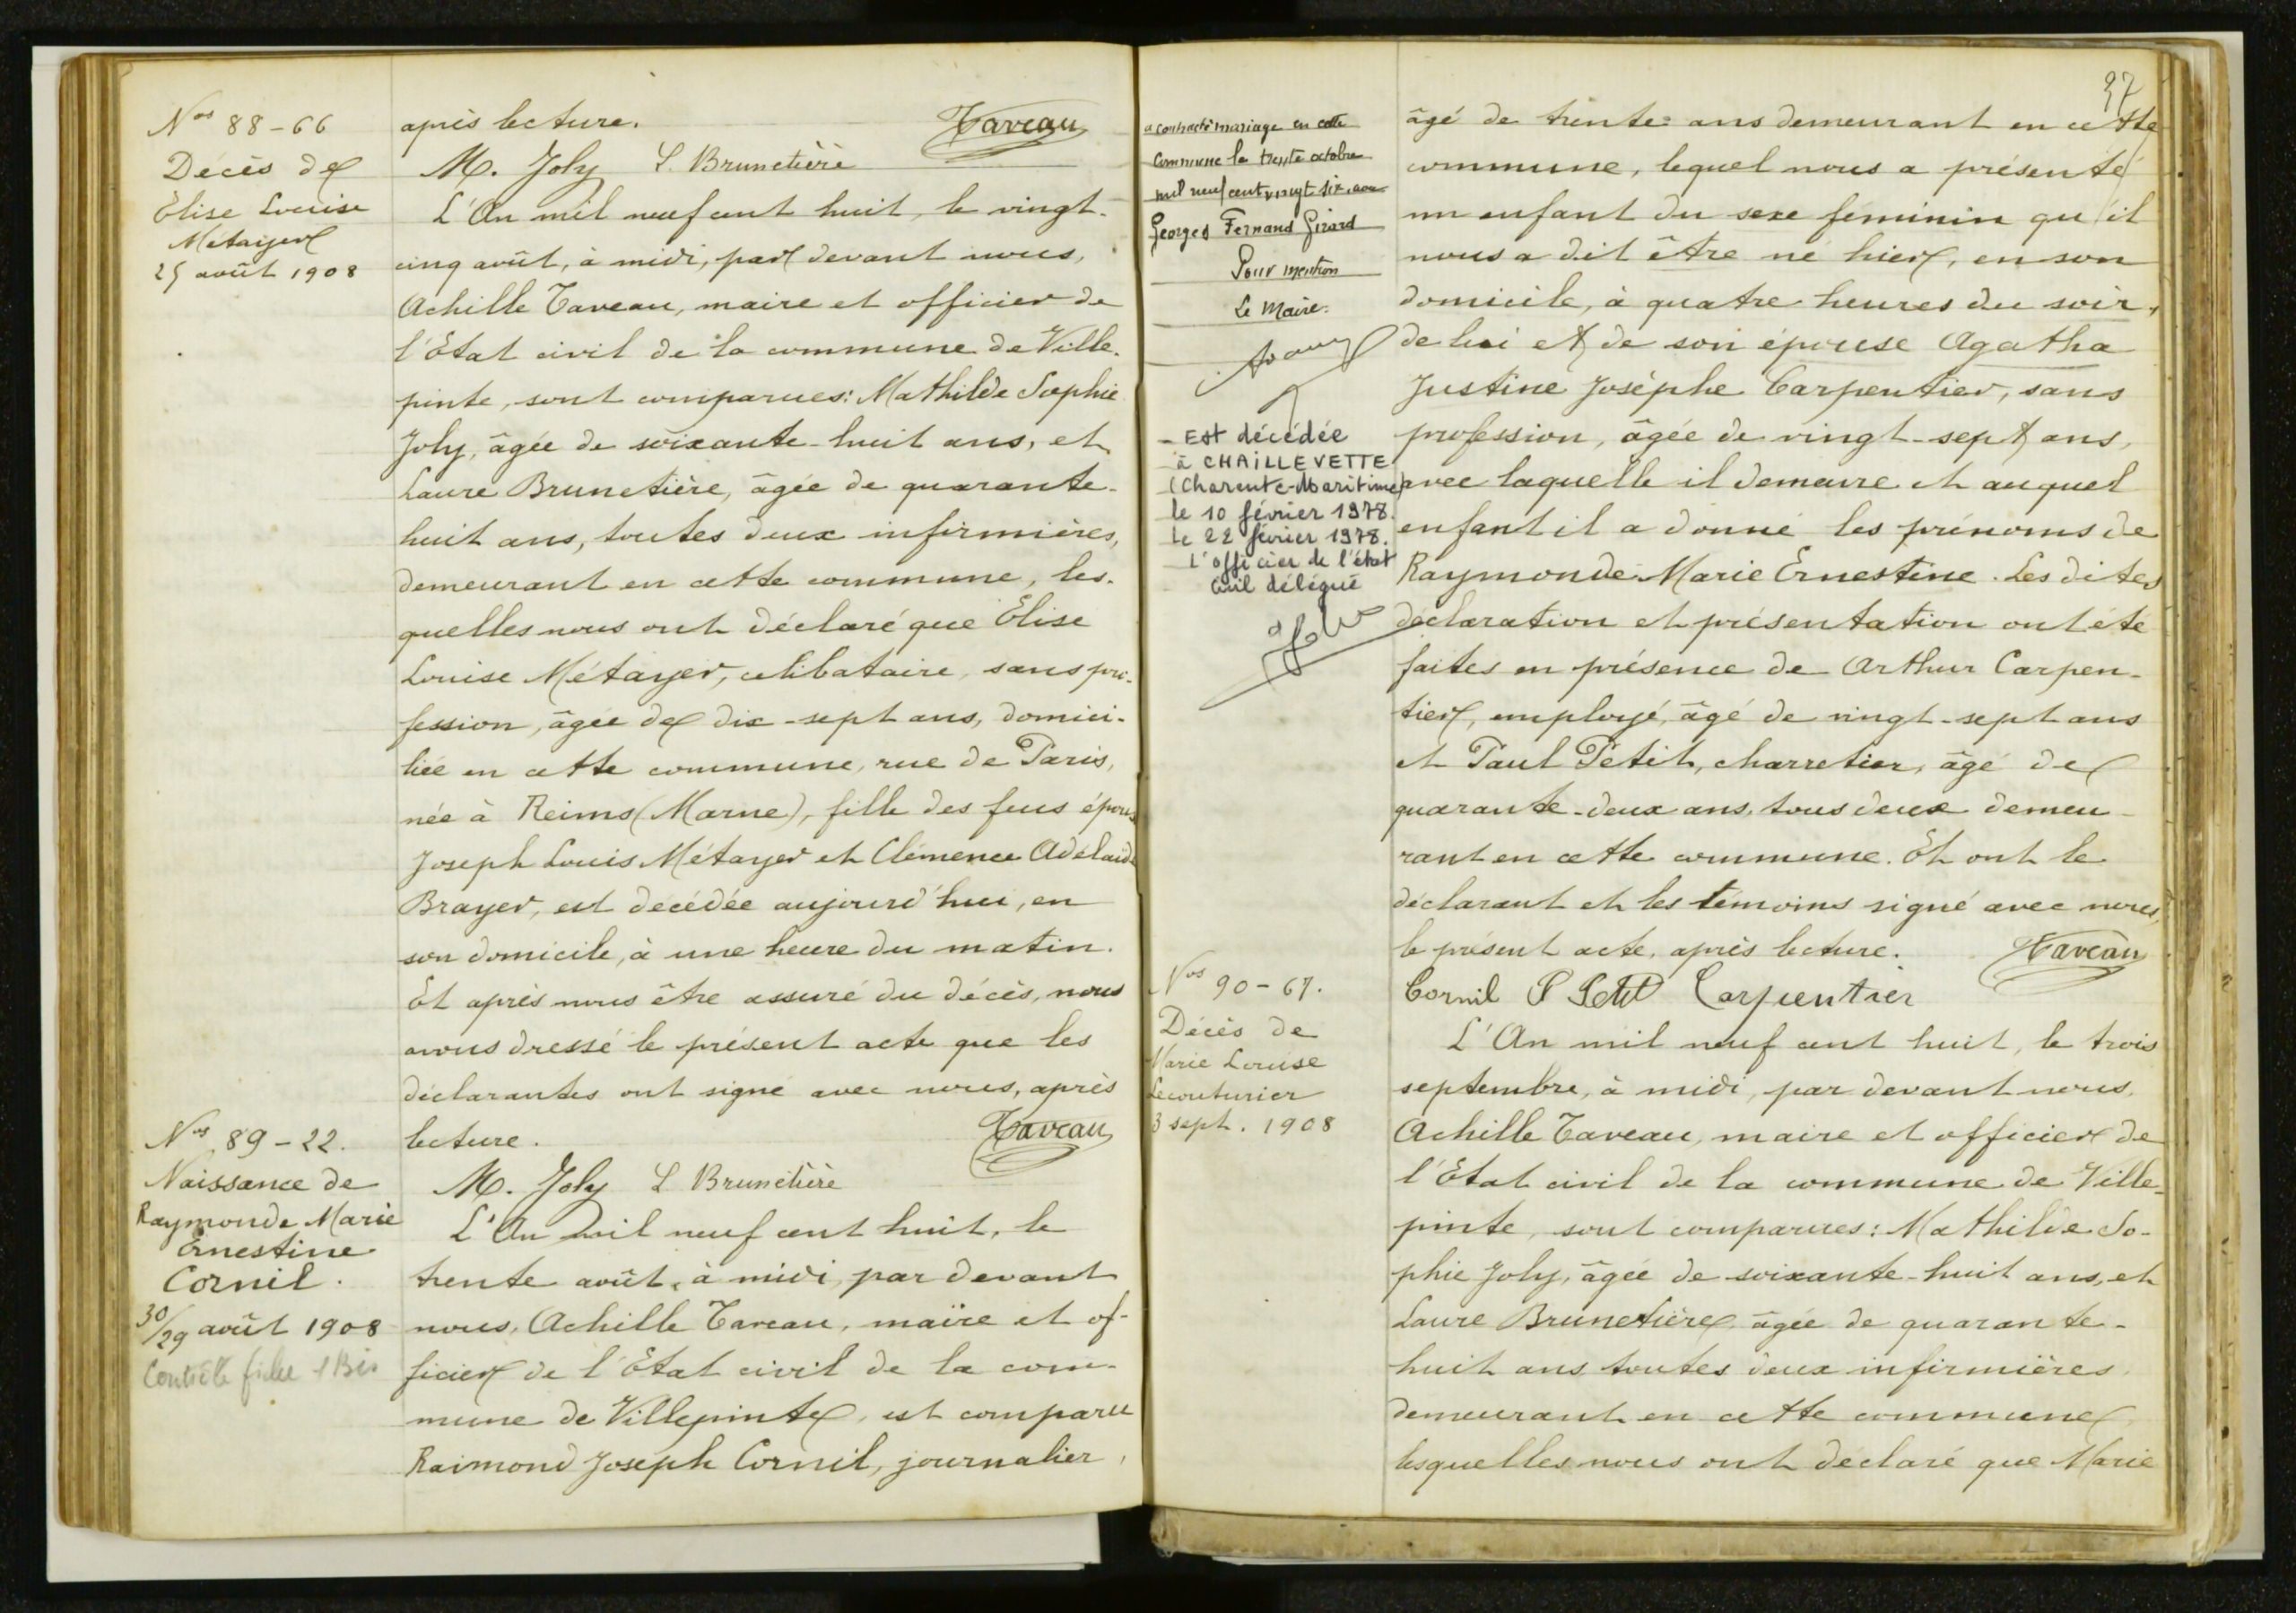 Nos 88-66
Décès de
Elise Louise
Métayer
25 août 1908
après lecture.
Taveau
M. Joly L Brunetière
L'An mil neuf cent huit, le vingt-
cinq août, à midi, par devant nous,
Achille Taveau, maire et officier de
l'Etat civil de la commune de Ville-
pinte, sont comparues: Mathilde Sophie
Joly, âgée de soixante-huit ans, et
Laure Brunetière, âgée de quarante-
huit ans, toutes deux infirmières,
demeurant en cette commune, les-
quelles nous ont déclaré que Elise
Louise Métayer, célibataire, sans pro-
fession, âgée de dix-sept ans, domici-
liée en cette commune, rue de Paris,
née à Reims (Marne), fille des feus époux
Joseph Louis Métayer et Clémence Adélaide
Brayer, est decédée aujourd'hui, en
son domicile, à une heure du matin.
Et après nous être assuré du décès, nous
avons dressé le présent acte que les
déclarantes ont signé avec nous, après
lecture.
Taveau
M. Joly L Brunetière
Nos 89-22.
Naissance de
Raymonde Marie
Ernestine
Cornil.
30/29 août 1908
Contrôle fiche 1 Bis
L'An mil neuf cent huit, le
trente août, à midi, par devant
nous, Achille Taveau, maire et of-
ficier de l'Etat civil de la com-
mune de Villepinte, est comparu
Raimond Joseph Cornil, journalier,
37
a contracté mariage en cette
commune le trente octobre
mil neuf cent vingt six, avec
Georges Fernand Girard
Pour mention
Le Maire.
- Est décédée
à CHAILLEVETTE
(Charente-Maritime)
le 10 février 1978.
Le 22 février 1978.
L'officier de l'état
Civil délégué
âgé de trente ans demeurant en cette
commune, lequel nous a présenté
un enfant du sexe féminin qu'il
nous a dit être né hier, en son
domicile, à quatre heures du soir,
de lui et de son épouse Agatha
Justine Joséphe Carpentier, sans
profession, âgée de vingt-sept ans,
avec laquelle il demeure et auquel
enfant il a donné les prénoms de
Raymonde Marie Ernestine. Les dites
déclaration et présentation ont été
faites en présence de Arthur Carpen-
tier, employé, âgé de vingt-sept ans
et Paul Petit, charretier, âgé de
quarante-deux ans, tous deux demeu-
rant en cette commune. Et ont le
déclarant et les témoins signé avec nous,
le présent acte, après lecture.
Taveau
Cornil P Petit Carpentier
Nos 90-67.
Décès de
Marie Louise
Lecouturier
3 sept. 1908
L'An mil neuf cent huit, le trois
septembre, à midi, par devant nous,
Achille Taveau, maire et officier de
l'Etat civil de la commune de Ville-
pinte, sont comparues: Mathilde So-
phie Joly, âgée de soixante-huit ans, et
Laure Brunetière, âgée de quarante-
huit ans, toutes deux infirmières,
demeurant en cette commune,
lesquelles nous ont déclaré que Marie